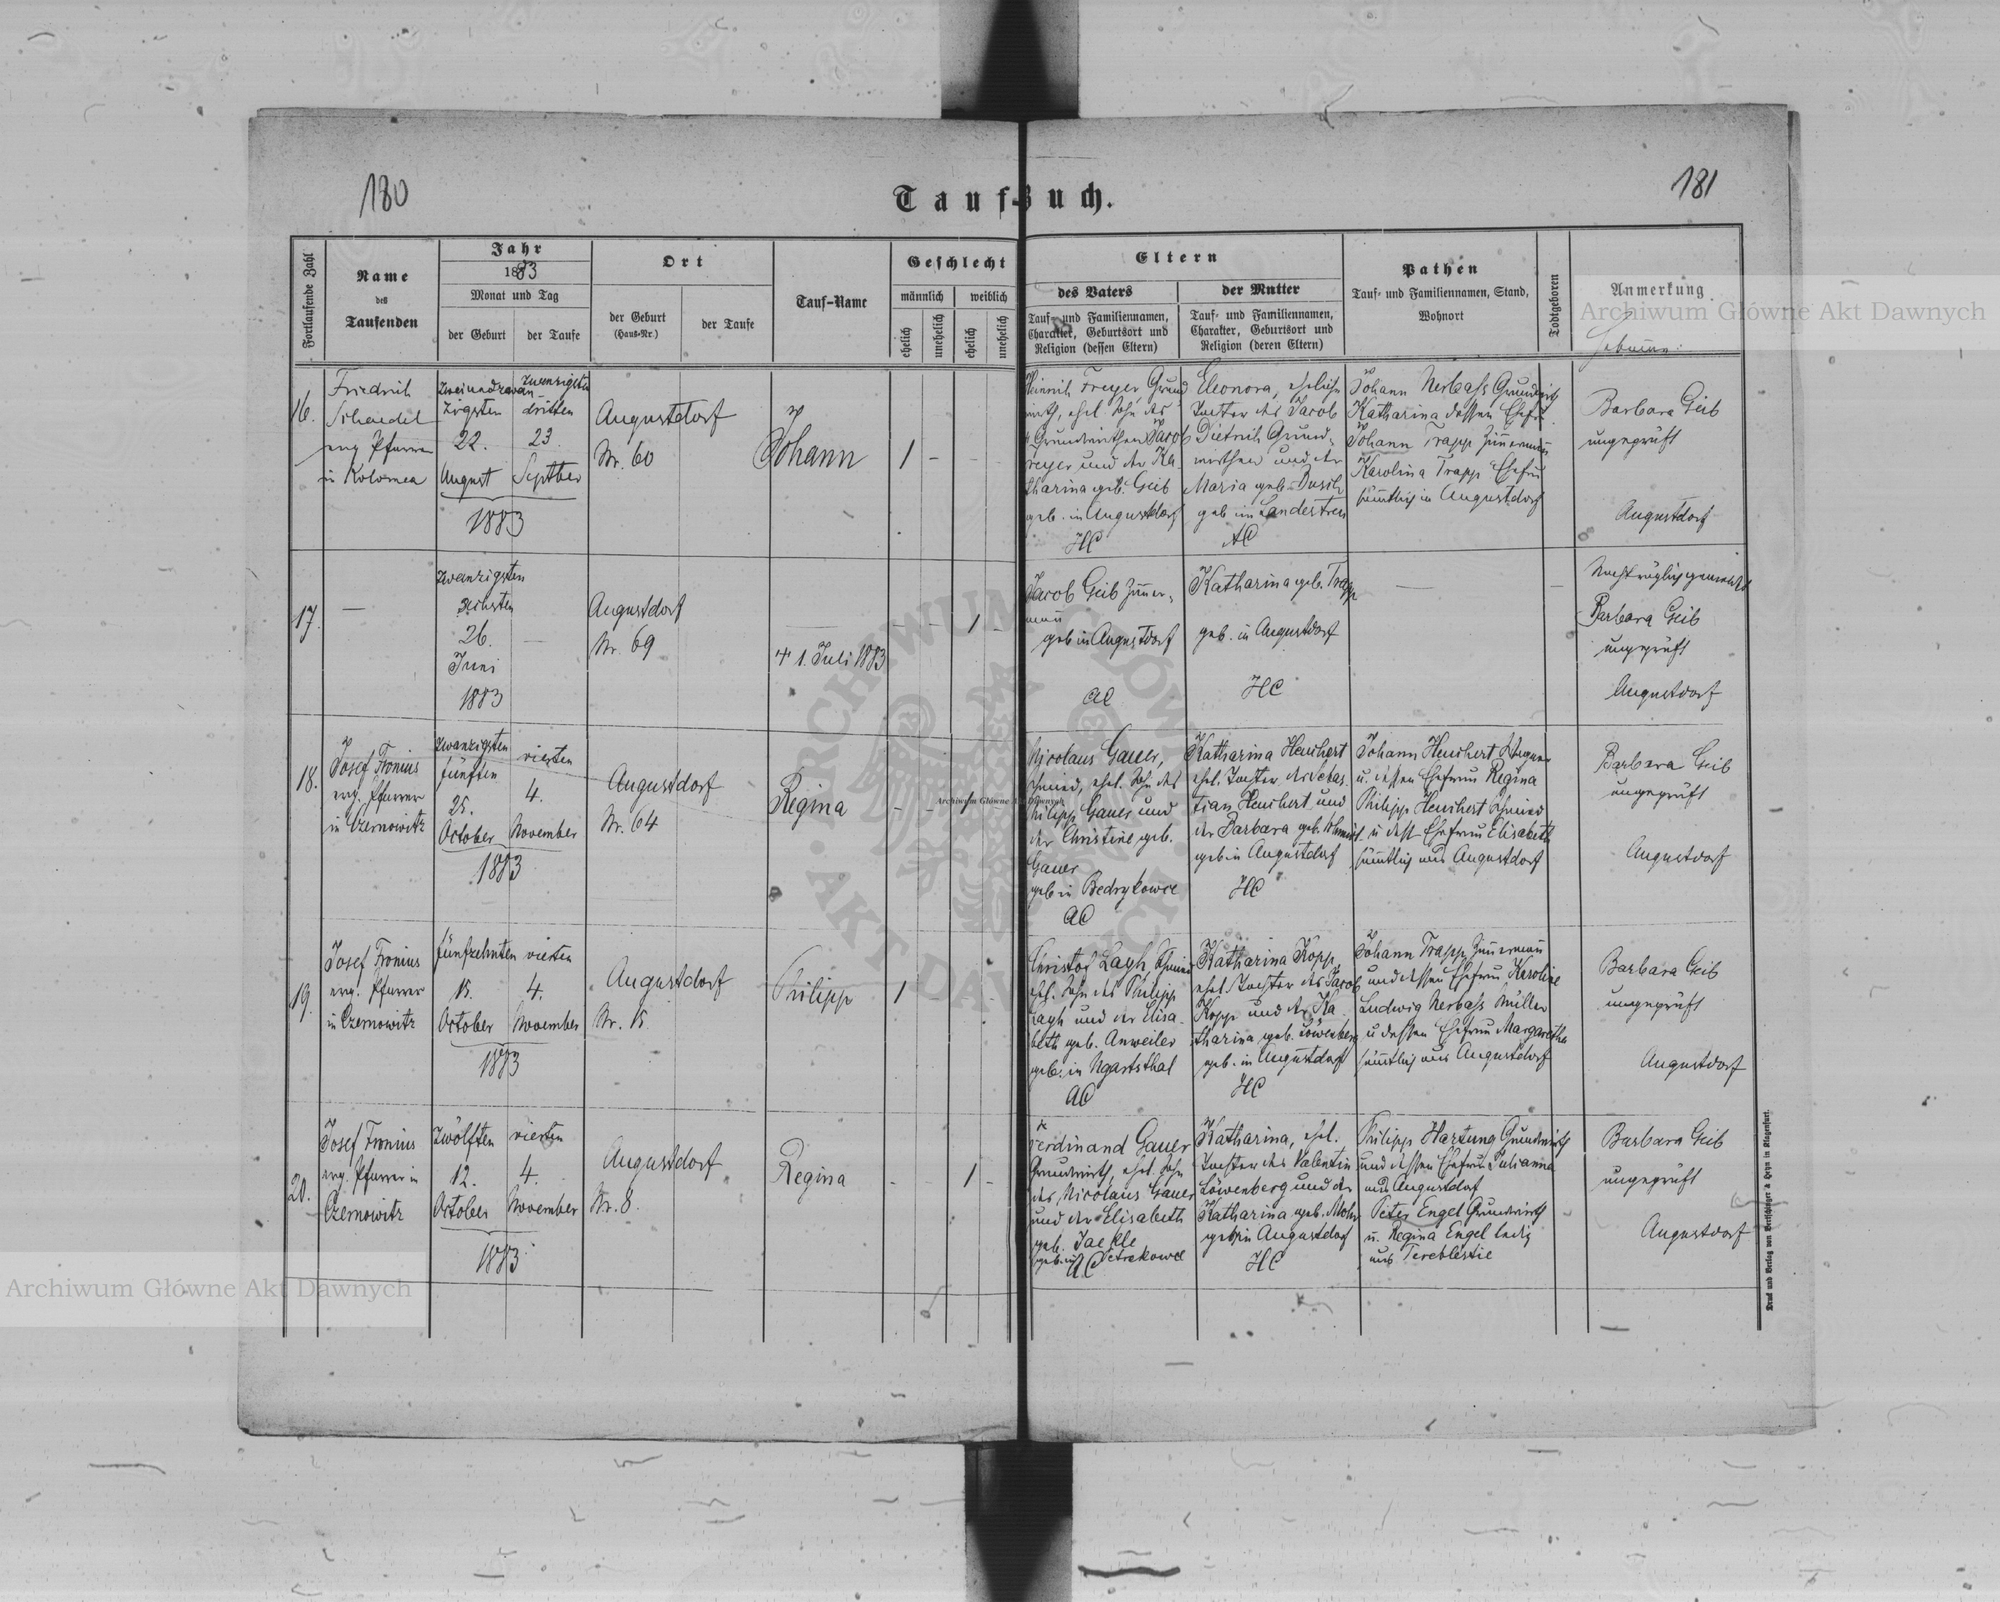 180
181
Tauf-Buch.
Fortlaufende Zahl
Name
des
Taufenden
Jahr
1883
Monat und Tag
der Geburt
der Taufe
Ort
der Geburt
(Haus-Nr.)
der Taufe
Tauf-Name
Geschlecht
männlich
weiblich
ehelich
unehelich
ehelich
unehelich
Eltern
des Vaters
Tauf- und Familiennamen,
Charakter, Geburtsort und
Religion (dessen Eltern)
der Mutter
Tauf- und Familiennamen,
Charakter, Geburtsort und
Religion (deren Eltern)
Pathen
Tauf- und Familiennamen, Stand,
Wohnort
Todtgeboren
Anmerkung
Archiwum Główne Akt Dawnych
16.
Friedrich
Schaedel
evg. Pfarrer
in Kolomea
Zweiundzwan
zigsten
22.
August
zwanzigsten
dritten
23
Septber
1883
Augustdorf
Nr. 60
Johann
1 - - -
Heinrich Freyer, Grund
wirth, ehel. Sohn des
Grundwirthen Jacob
Freyer und der Ka-
tharina geb. Geib
geb. in Augustdorf
HC
Eleonora, eheliche
Tochter des Jacob
Dietrich Grund-
wirthen und der
Maria geb.
geb. in Landestreu
AC
Johann Nerbass Grundwirth
Katharina dessen Ehefr.
Johann Trapp Zimmermann
Karolina Trapp Ehefrau
sämtlich in Augustdorf
Barbara Geib
ungeprüft
Augustdorf
17.
—
zwanzigsten
sechsten
26.
Juni
1883
—
Augustdorf
Nr. 69
† 1. Juli 1883
- - 1 -
Jacob Geib Zimmer-
mann
geb in Augustdorf
AC
Katharina geb. Trapp
geb. in Augustdorf
HC
—
—
Barbara Geib
ungeprüft
Augustdorf
18.
Josef Fronius
evg. Pfarrer
in Czernowitz
zwanzigsten
fünften
25.
October
vierten
4.
November
1883
Augustdorf
Nr. 64
Regina
- - 1 -
Nicolaus Gauer,
Schmied, ehel. Sohn des
Philipp Gauer und
der Christine geb.
Gauer
geb in Bedrykowce
AC
Katharina Heuchert
ehel. Tochter des Sebas
tian Heuchert und
der Barbara geb. Schmidt
geb in Augustdorf
HC
Johann Heuchert Wagner
u. dessen Ehefrau Regina
Philipp Heuchert Schmied
u dess Ehefrau Elisabeth
sämtlich aus Augustdorf
Barbara Geib
ungeprüft
Augustdorf
Archiwum Główne Akt Dawnych
19.
Josef Fronius
evg. Pfarrer
in Czernowitz
fünfzehnten
15.
October
vierten
4.
November
1883
Augustdorf
Nr. 15
Philipp
1 - - -
Christof Layh Schmied
ehl. Sohn des Philipp
Layh und der Elisa
beth geb. Anweiler
geb. in Ugartsthal
AC
Katharina Kopp
ehel Tochter des Jacob
Kopp und der Ka
tharina geb. Löwenberg
geb. in Augustdorf
HC
Johann Trapp Zimmermann
und dessen Ehefrau Karoline
Ludwig Nerbass Müller
u dessen Ehefrau Margaretha
sämtlich aus Augustdorf
Barbara Geib
ungeprüft
Augustdorf
20.
Josef Fronius
evg. Pfarrer in
Czernowitz
Zwölften
12.
October
vierten
4.
November
1883
Augustdorf
Nr. 8.
Regina
- - 1 -
Ferdinand Gauer
Grundwirth, ehel. Sohn
des Nicolaus Gauer
und der Elisabeth
geb. Jaekle
geb in Petrekowce
AC
Katharina, ehel.
Tochter des Valentin
Löwenberg und der
Katharina geb. Mohr
geb in Augustdorf
HC
Philipp Hartung Grundwirth
und dessen Ehefrau Julianna
aus Augustdorf
Peter Engel Grundwirth
u. Regina Engel ledig
aus Tereblestie
Barbara Geib
ungeprüft
Augustdorf
Archiwum Główne Akt Dawnych
ARCHIWUM GŁÓWNE AKT DAWNYCH
Druck und Verlag von Bertschinger & Heyn in Klagenfurt.